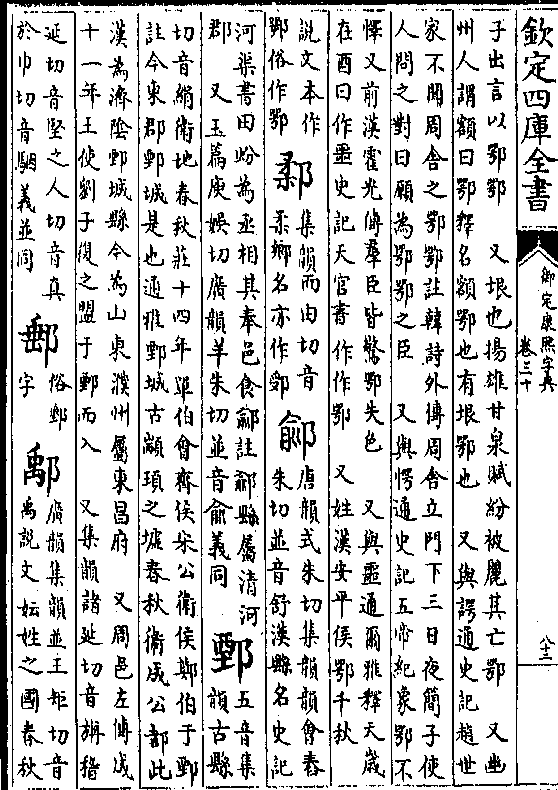 欽定四庫全書
御定康熙字典
卷三十
八十二
子出言以鄂鄂　又垠也揚雄甘泉賦紛被麗其亡鄂　又幽
州人謂額曰鄂釋名額鄂也有垠鄂也　又與諤通史記趙世
家不聞周舍之鄂鄂註韓詩外傳周舍立門下三日夜簡子使
人問之對曰願為鄂鄂之臣　又與愕通史記五帝紀象鄂不
懌又前漢霍光傳羣臣皆驚鄂失色　又與噩通爾雅釋天歲
在酉曰作噩史記天官書作作鄂　又姓漢安平侯鄂千秋
說文本作鄂俗作鄂　鄀集韻而由切音柔鄉名亦作鄀　鄃唐韻式朱切集韻韻會舂朱切並音舒漢縣名史記
河渠書田蚡為丞相其奉邑食鄃註鄃縣屬清河郡　又玉篇庾娛切廣韻羊朱切並音俞義同　鄄五音集韻古縣
切音絹衛地春秋莊十四年單伯會齊侯宋公衛侯鄭伯于鄄註今東郡鄄城是也通雅鄄城古顓頊之墟春秋衛成公都此
漢為濟陰鄄城縣今為山東濮州屬東昌府　又周邑左傳成十一年王使劉子復之盟于鄄而入　又集韻諸延切音旃稽
延切音堅之人切音真於巾切音駰義並同　郵俗郵字　鄅廣韻集韻並王矩切音禹說文妘姓之國春秋